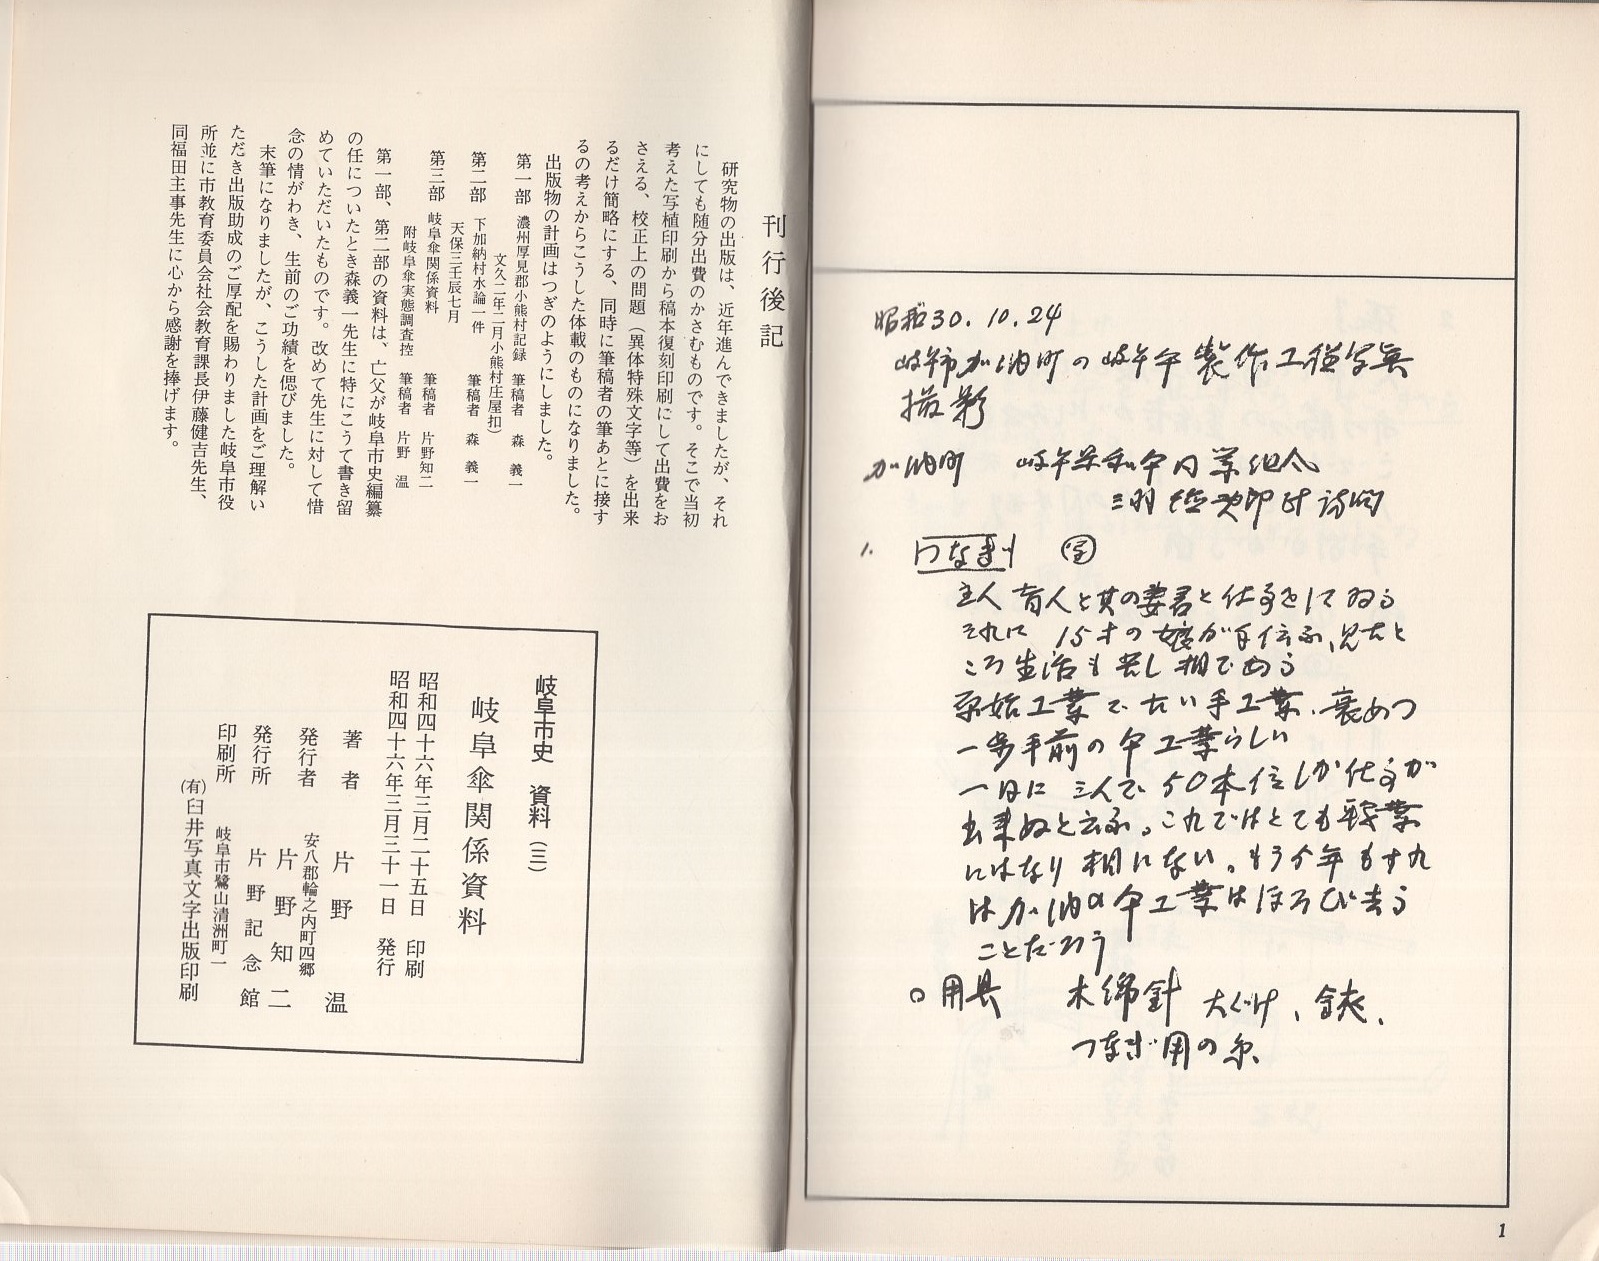 刊行後記
研究物の出版は、近年進んできましたが、それ
にしても随分出費のかさむものです。そこで当初
考えた写植印刷から稿本復刻印刷にして出費をお
さえる、校正上の問題（異体特殊文字等）を出来
るだけ簡略にする、同時に筆稿者の筆あとに接す
るの考えからこうした体載のものになりました。
出版物の計画はつぎのようにしました。
第一部 濃州厚見郡小熊村記録 筆稿者 森 義一
文久二年二月小熊村庄屋扣）
第二部 下加納村水論一件 筆稿者 森 義一
天保三壬辰七月
第三部 岐阜傘関係資料 筆稿者 片野知二
附岐阜傘実態調査控 筆稿者 片野 温
第一部、第二部の資料は、亡父が岐阜市史編纂
の任についたとき森義一先生に特にこうて書き留
めていただいたものです。改めて先生に対して惜
念の情がわき、生前のご功績を偲びました。
末筆になりましたが、こうした計画をご理解い
ただき出版助成のご厚配を賜わりました岐阜市役
所並に市教育委員会社会教育課長伊藤健吉先生、
同福田主事先生に心から感謝を捧げます。
岐阜市史 資料（三）
岐阜傘関係資料
昭和四十六年三月二十五日 印刷
昭和四十六年三月三十一日 発行
著者 片野 温
安八郡輪之内町四郷
発行者 片野知二
発行所 片野記念館
岐阜市鷺山清洲町一
印刷所 (有)臼井写真文字出版印刷
昭和30.10.24
岐阜市加納町の岐阜傘製作工程写真
撮影
加納町 岐阜県和傘同業組合
三羽 次郎氏 訪問
1. つなぎ
主人盲人と其の妻君と仕事をしてゐる
それに 15才の娘が手伝ふ、見たと
ころ生活も苦し相である
原始工業でない手工業、衰めつ
一歩手前の傘工業らしい
一日に 三人で 50本位しか仕事が
出来ぬと云ふ。これではとても職業
にはなり相にない。もう少年もすれ
ば加納の傘工業はほろび去る
ことだろう
○用具 木綿針 大ぐけ、鋏、
つなぎ用の糸
1